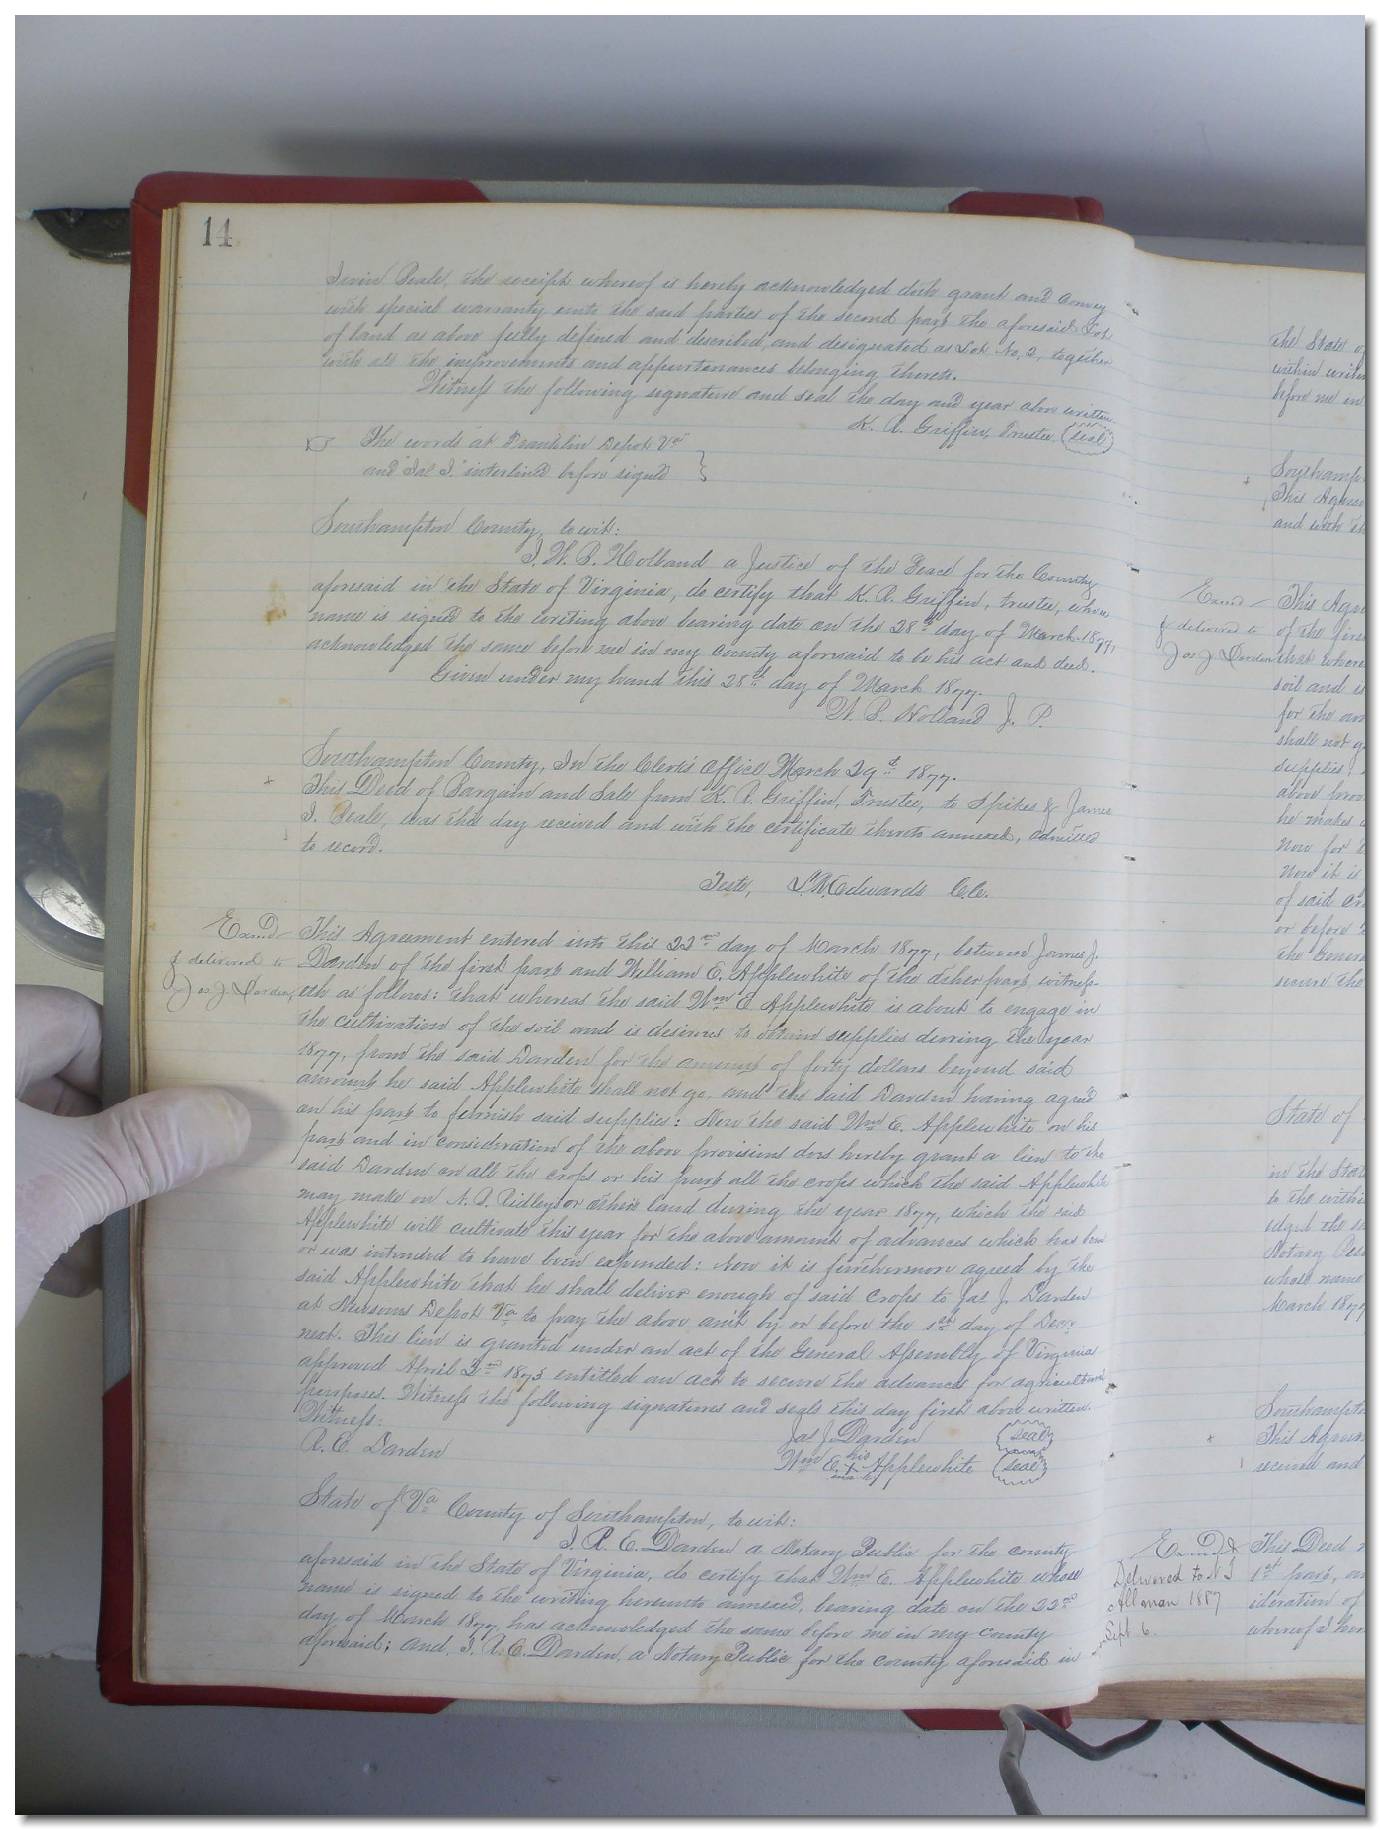 14
Irvin Beale, the receipt whereof is hereby acknowledged doth grant and convey
with special warranty unto the said parties of the second part the aforesaid Lot
of land as above fully defined and described, and designated as Lot No, 2, together
with all the improvements and appurtenances belonging thereto.
Witness the following signature and seal the day and year above written.
K. R. Griffin, Trustee (seal)
The words "at Franklin Depot Va"
and "Jas I." interlined before signed
Southampton County, to wit:
I. W. B. Holland a Justice of the Peace for the County
aforesaid in the State of Virginia, do certify that K. R. Griffin, trustee, whose
name is signed to the writing above bearing date on the 28th day of March 1877,
acknowledged the same before me in my County aforesaid to be his act and deed.
Given under my hand this 28th day of March 1877.
W. B. Holland J. P.
Southampton County, In the Clerk's Office March 29th 1877.
+ This Deed of Bargain and Sale from K. R. Griffin, Trustee, to Spikes & James
I. Beale, was this day received and with the certificate thereto annexed, admitted
to record.
Teste, L. R. Edwards C.C.
Exmd
& delivered to
Jas J Darden
This Agreement entered into this 22nd day of March 1877, between James J.
Darden of the first part and William E. Applewhite of the other part, witness-
eth as follows: that whereas the said Wm E Applewhite is about to engage in
the cultivation of the soil and is desirous to obtain supplies during the year
1877, from the said Darden for the amount of forty dollars beyond said
amount he said Applewhite shall not go, and the said Darden having agreed
on his part to furnish said supplies: Now the said Wm E. Applewhite on his
part and in consideration of the above provisions does hereby grant a lien to the
said Darden on all the crops or his part all the crops which the said Applewhite
may make on N. A. Ridleys or other land during the year 1877, which the said
Applewhite will cultivate this year for the above amount of advances which has been
or was intended to have been expended: Now it is furthermore agreed by the
said Applewhite that he shall deliver enough of said crops to Jas J. Darden
at Newsoms Depot Va to pay the above amt by or before the 1st day of Decr
next. This lien is granted under an act of the General Assembly of Virginia
approved April 2nd 1873 entitled an act to secure the advances for agricultural
purposes. Witness the following signatures and seals this day first above written.
Witness:
R. E. Darden
Jas J. Darden (seal)
Wm E. his X mark Applewhite (seal)
State of Va County of Southampton, to wit:
I. R. E. Darden a Notary Public for the county
aforesaid in the State of Virginia, do certify that Wm E. Applewhite whose
name is signed to the writing hereunto annexed, bearing date on the 22nd
day of March 1877, has acknowledged the same before me in my county
aforesaid; and, I. R. E. Darden, a Notary Public for the county aforesaid in
the State of
within
before me in
+ Southamp
This Agree
and with th
Exmd
& delivered to
Jas J Darden
This Agre
of the firs
that where
soil and is
for the
shall not g
supplies:
above prov
he makes
Now for
Now it is
of said
or before
the Genera
secure the
State of
in the Stat
to the withi
edged the sa
Notary
whose name
March 1877
Southampto
+ This Agreem
received and
Exmd &
Delivered to N J
Allman 1887
Sept 6.
This Deed
1st part, an
ideration of
whereof